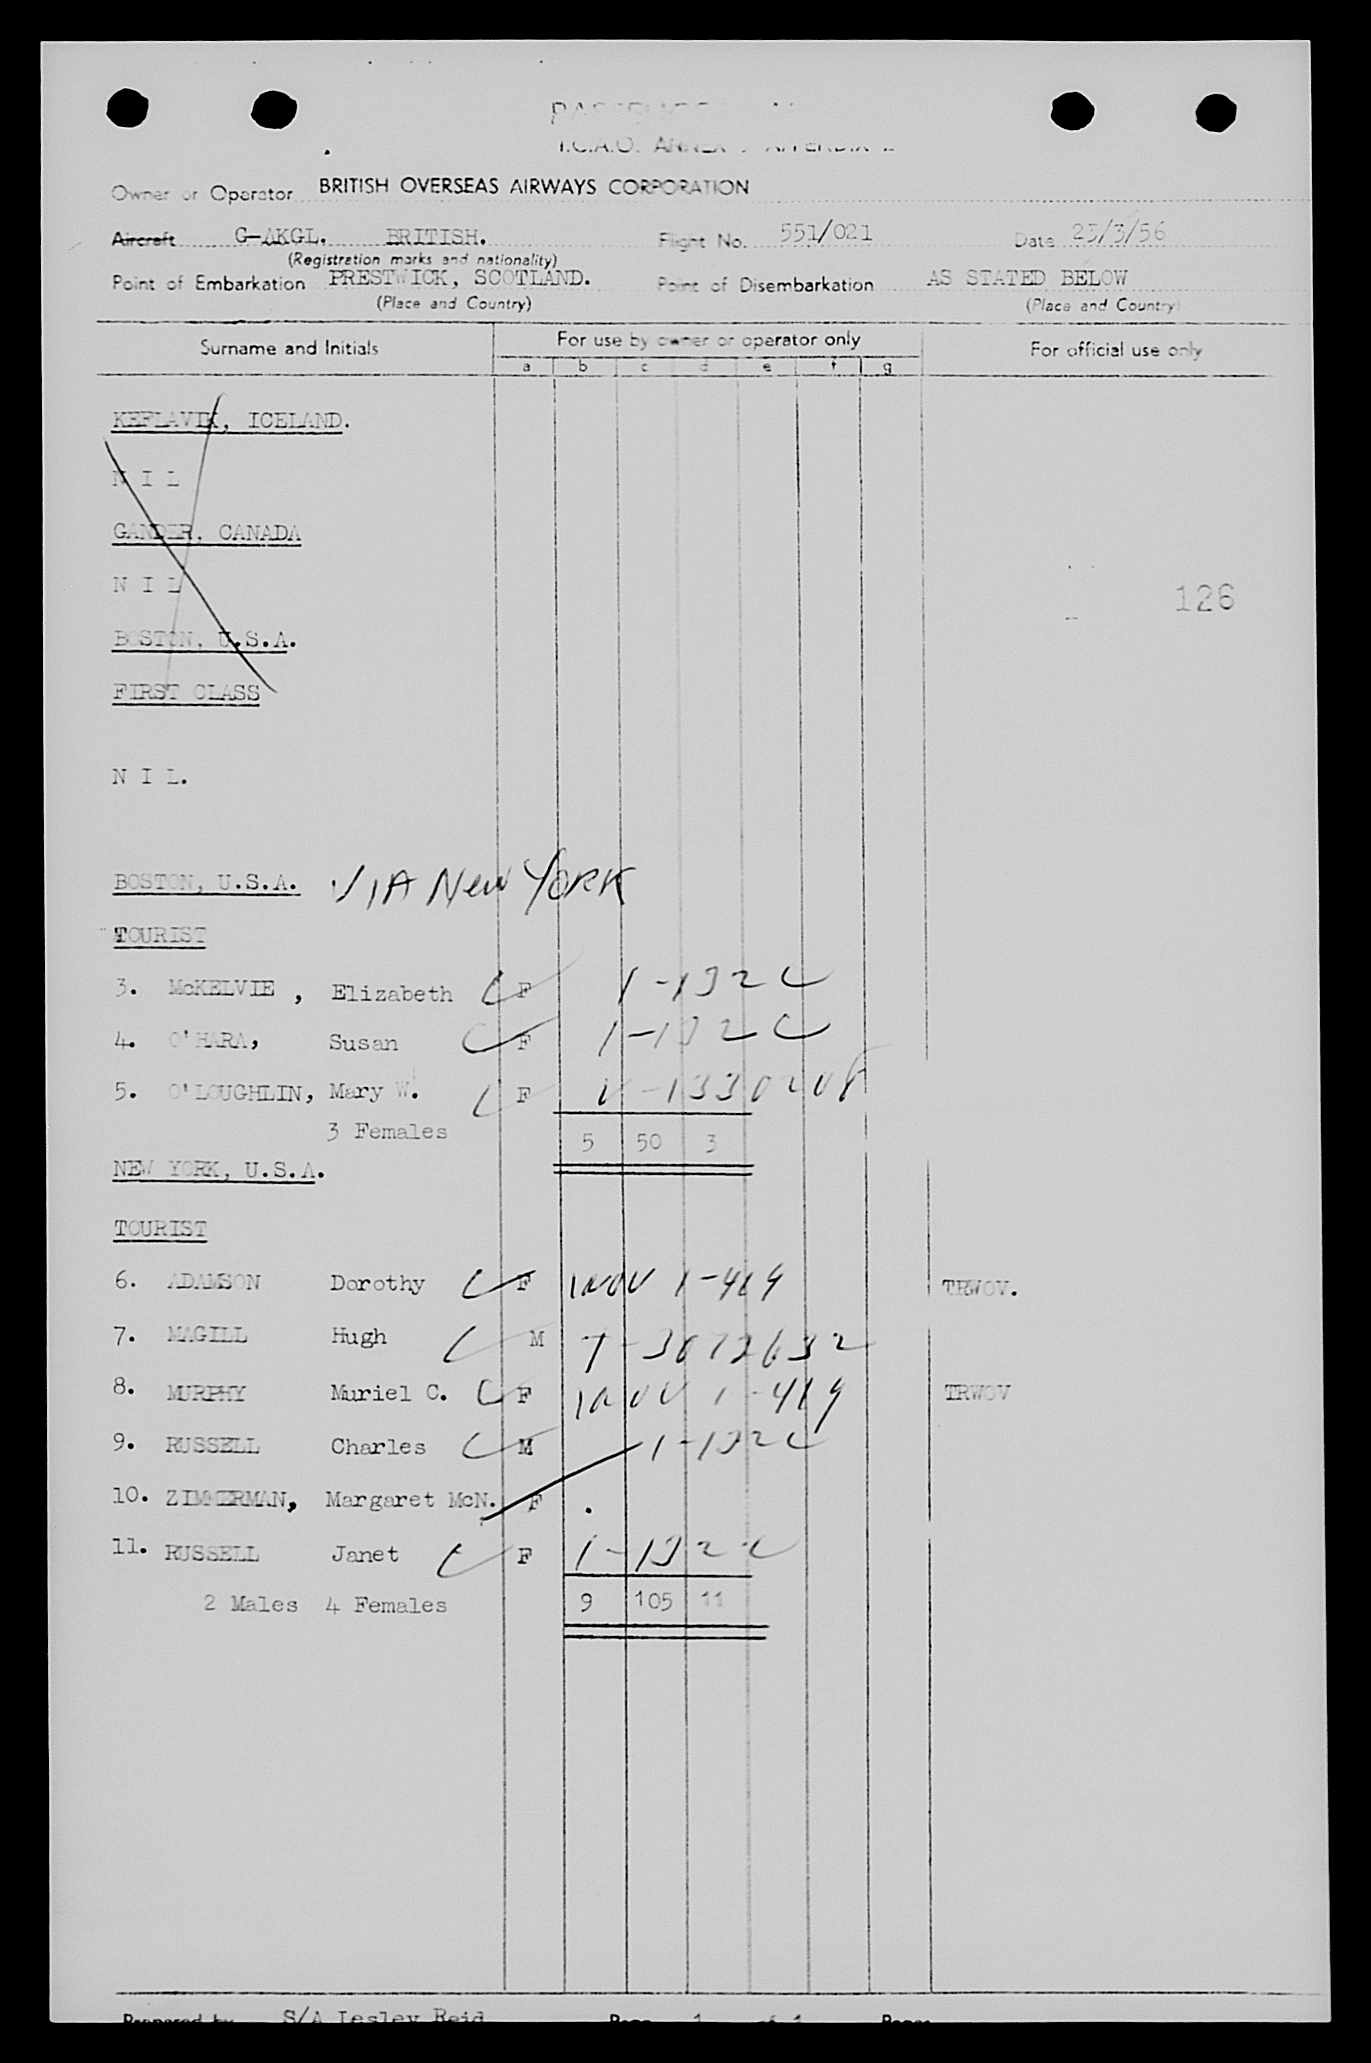 I.C.A.O. ANNEX
Owner or Operator BRITISH OVERSEAS AIRWAYS CORPORATION
Aircraft G-AKGL. BRITISH. Flight No. 551/021 Date 23/3/56
(Registration marks and nationality)
Point of Embarkation PRESTWICK, SCOTLAND. Point of Disembarkation AS STATED BELOW
(Place and Country) (Place and Country)
Surname and Initials For use by owner or operator only For official use only
a b c d e f g
KEFLAVIK, ICELAND.
N I L
GANDER, CANADA
N I L
126
BOSTON, U.S.A.
FIRST CLASS
N I L.
BOSTON, U.S.A. VIA New YORK
TOURIST
3. McKELVIE , Elizabeth F 1-132C
4. O'HARA, Susan F 1-132C
5. O'LOUGHLIN, Mary W. F V-1330208
3 Females 5 50 3
NEW YORK, U.S.A.
TOURIST
6. ADAMSON Dorothy F 1-419 TRWOV.
7. MAGILL Hugh M
8. MURPHY Muriel C. F 1-419 TRWOV
9. RUSSELL Charles M 1-132C
10. ZIMMERMAN, Margaret McN. F
11. RUSSELL Janet F 1-132C
2 Males 4 Females 9 105 11
Prepared by S/A Lesley Reid Page 1 of 1 Pages